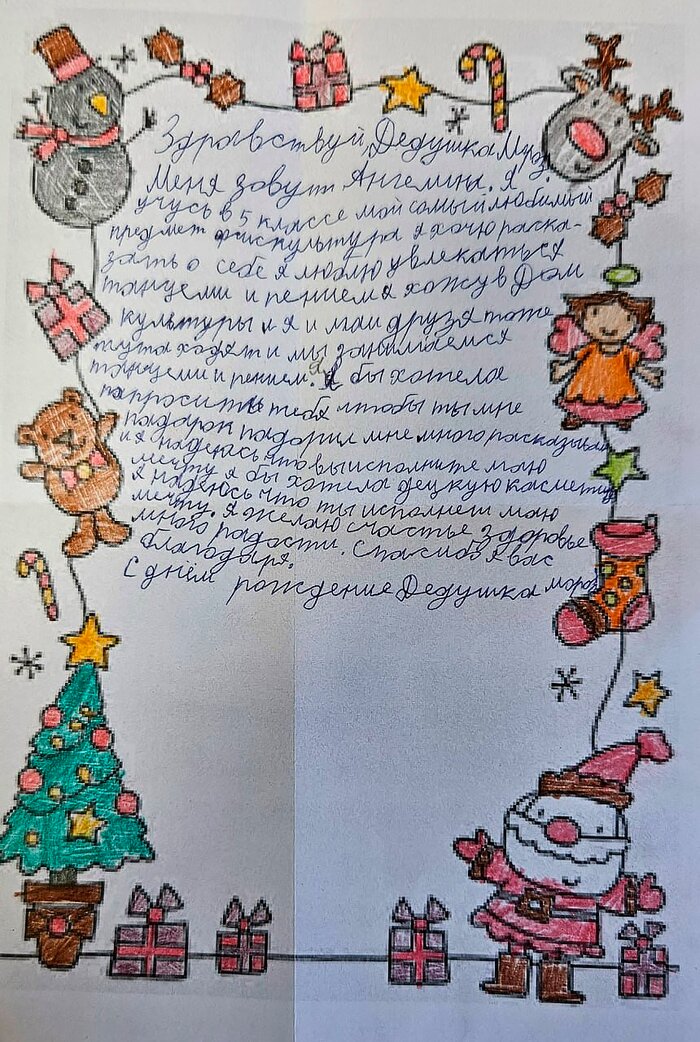 Здравствуй, Дедушка Мороз.
Меня зовут Ангелина. Я
учусь в 5 классе мой самый любимый
предмет фискультура я хочу раска-
зать о себе я люблю увлекаться
танцеми и пением я хожу в Дом
культуры и я и маи друзя тоже
тута ходят и мы занимаемся
танцеми и пением. Я бы хотела
попросить тебя чтобы ты мне
падарок падарил мне много расказывали
и я надеюсь что вы исполните маю
мечту я бы хотела децкую касметику
я надеюсь что ты исполнеш маю
мечту. Я желаю счастье здоровье
много радости. Спасибо я вас
благодаря.
С днём рождение Дедушка мороз